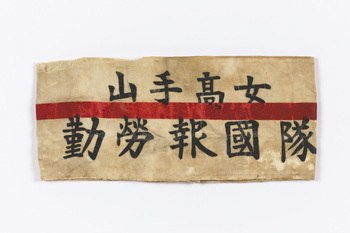 山手高女
勤勞報國隊